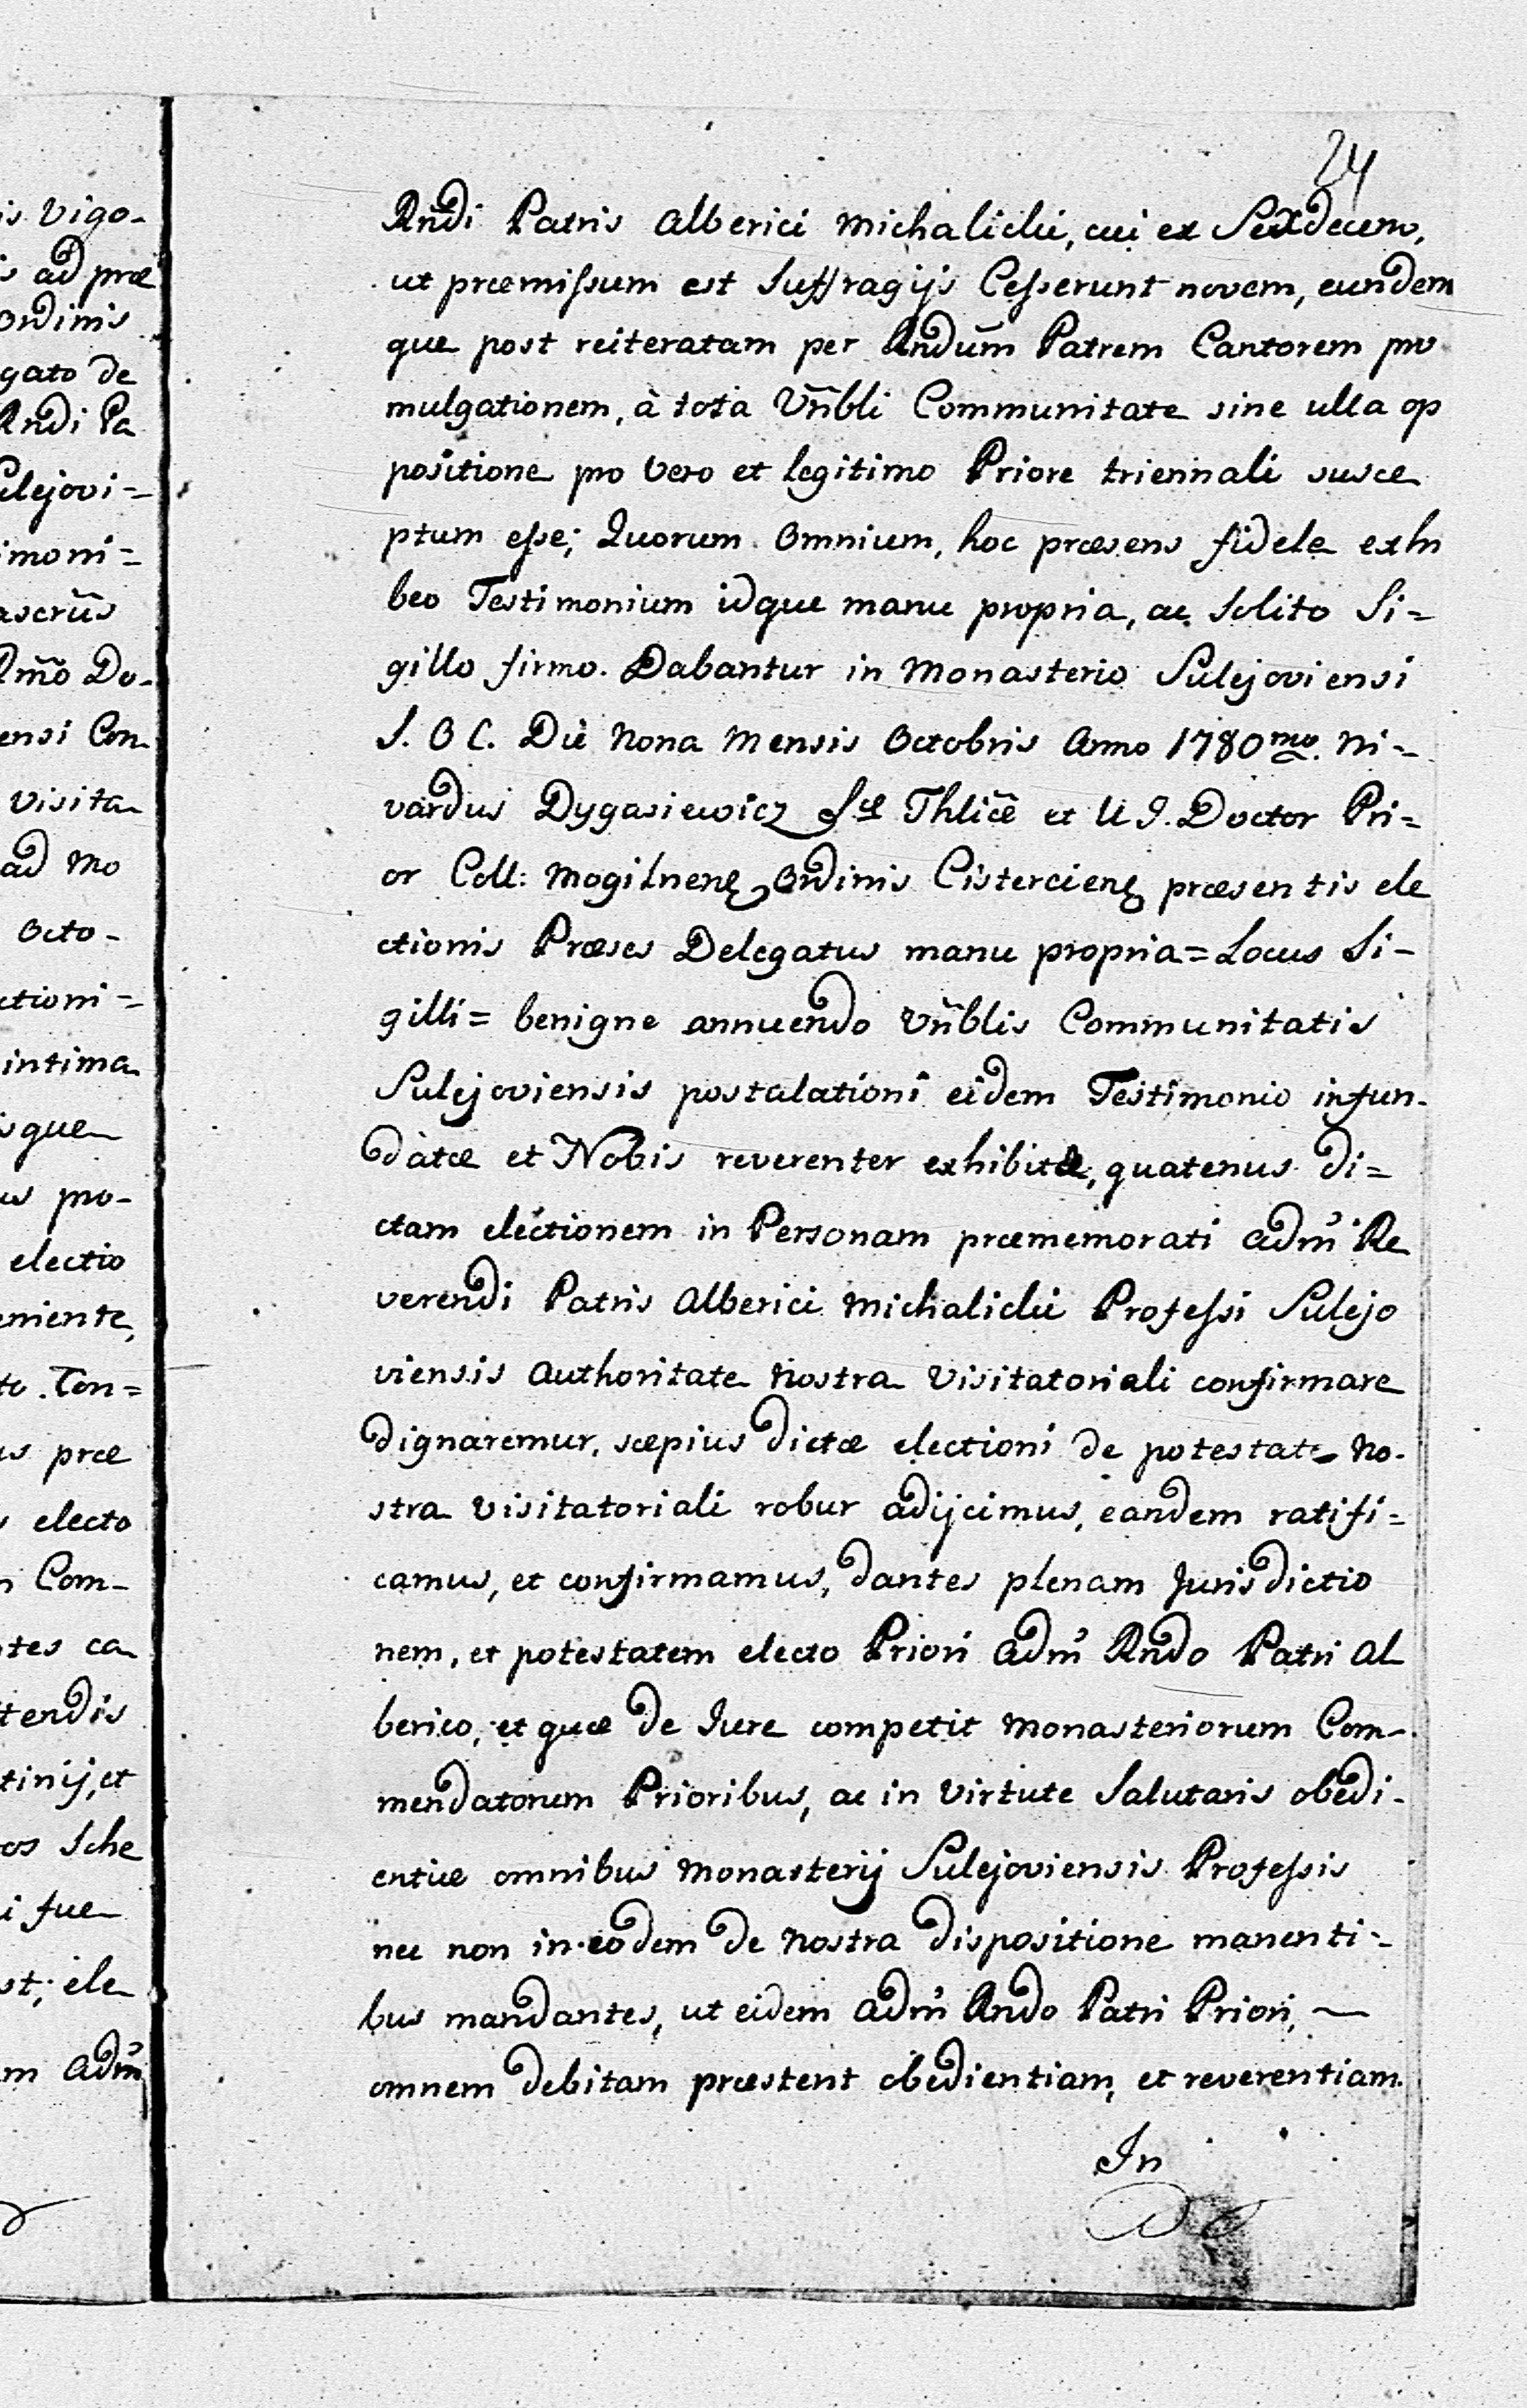 24
is Vigo-
s ad præ
Ordinis
gato de
Rndi Pa
ulejovi=
imoni=
ascrũs
Do-
ensi Con
Visita
ad Mo
Octo-
ctioni=
intima
sque
us pro-
electio
eniente,
to. Con=
us præ
s electo
n Com-
ntes ca
ttendis
tinij, et
os Sche
i fue
st; ele
m Adm̃
Rñdi Patris Alberici Michalicki, cui ex Sexdecem,
ut præmissum est Suffragijs Cesserunt novem, eundem
que post reiteratam per Rndum̃ Patrem Cantorem pro
mulgationem, à tota Vñbli Communitate sine ulla op
positione pro Vero et legitimo Priore triennali susce
ptum esse; Quorum Omnium, hoc præsens fidele exhi
beo Testimonium idque manu propria, ac Solito Si=
gillo firmo. Dabantur in Monasterio Sulejoviensi
S. O C. Die Nona Mensis Octobris Anno 1780mo. Ni=
vardus Dygasiewicz Sæ Thlicẽ et U J. Doctor Pri=
or Coll: Mogilnenę Ordinis Cistercienę præsentis ele
ctionis Præses Delegatus manu propria = Locus Si-
gilli = benigne annuendo Vñblis Communitatis
Sulejoviensis postulationi eidem Testimonio infun-
datæ et Nobis reverenter exhibitæ, quatenus di=
ctam electionem in Personam præmemorati Adm̃ Re
verendi Patris Alberici Michalicki Professi Sulejo
viensis Authoritate Nostra Visitatoriali confirmare
dignaremur, sæpius dictæ electioni de potestate No-
stra Visitatoriali robur adijcimus, eandem ratifi=
camus, et confirmamus, dantes plenam Jurisdictio
nem, et potestatem electo Priori Adm̃ Rñdo Patri Al
berico, et quæ de Jure competit Monasteriorum Com-
mendatorum Prioribus, ac in Virtute Salutaris obedi-
entiæ omnibus Monasterij Sulejoviensis Professis
nec non in eodem de Nostra dispositione manenti=
bus mandantes, ut eidem Adm̃ Rndo Patri Priori,
omnem debitam præstent obedientiam, et reverentiam.
In